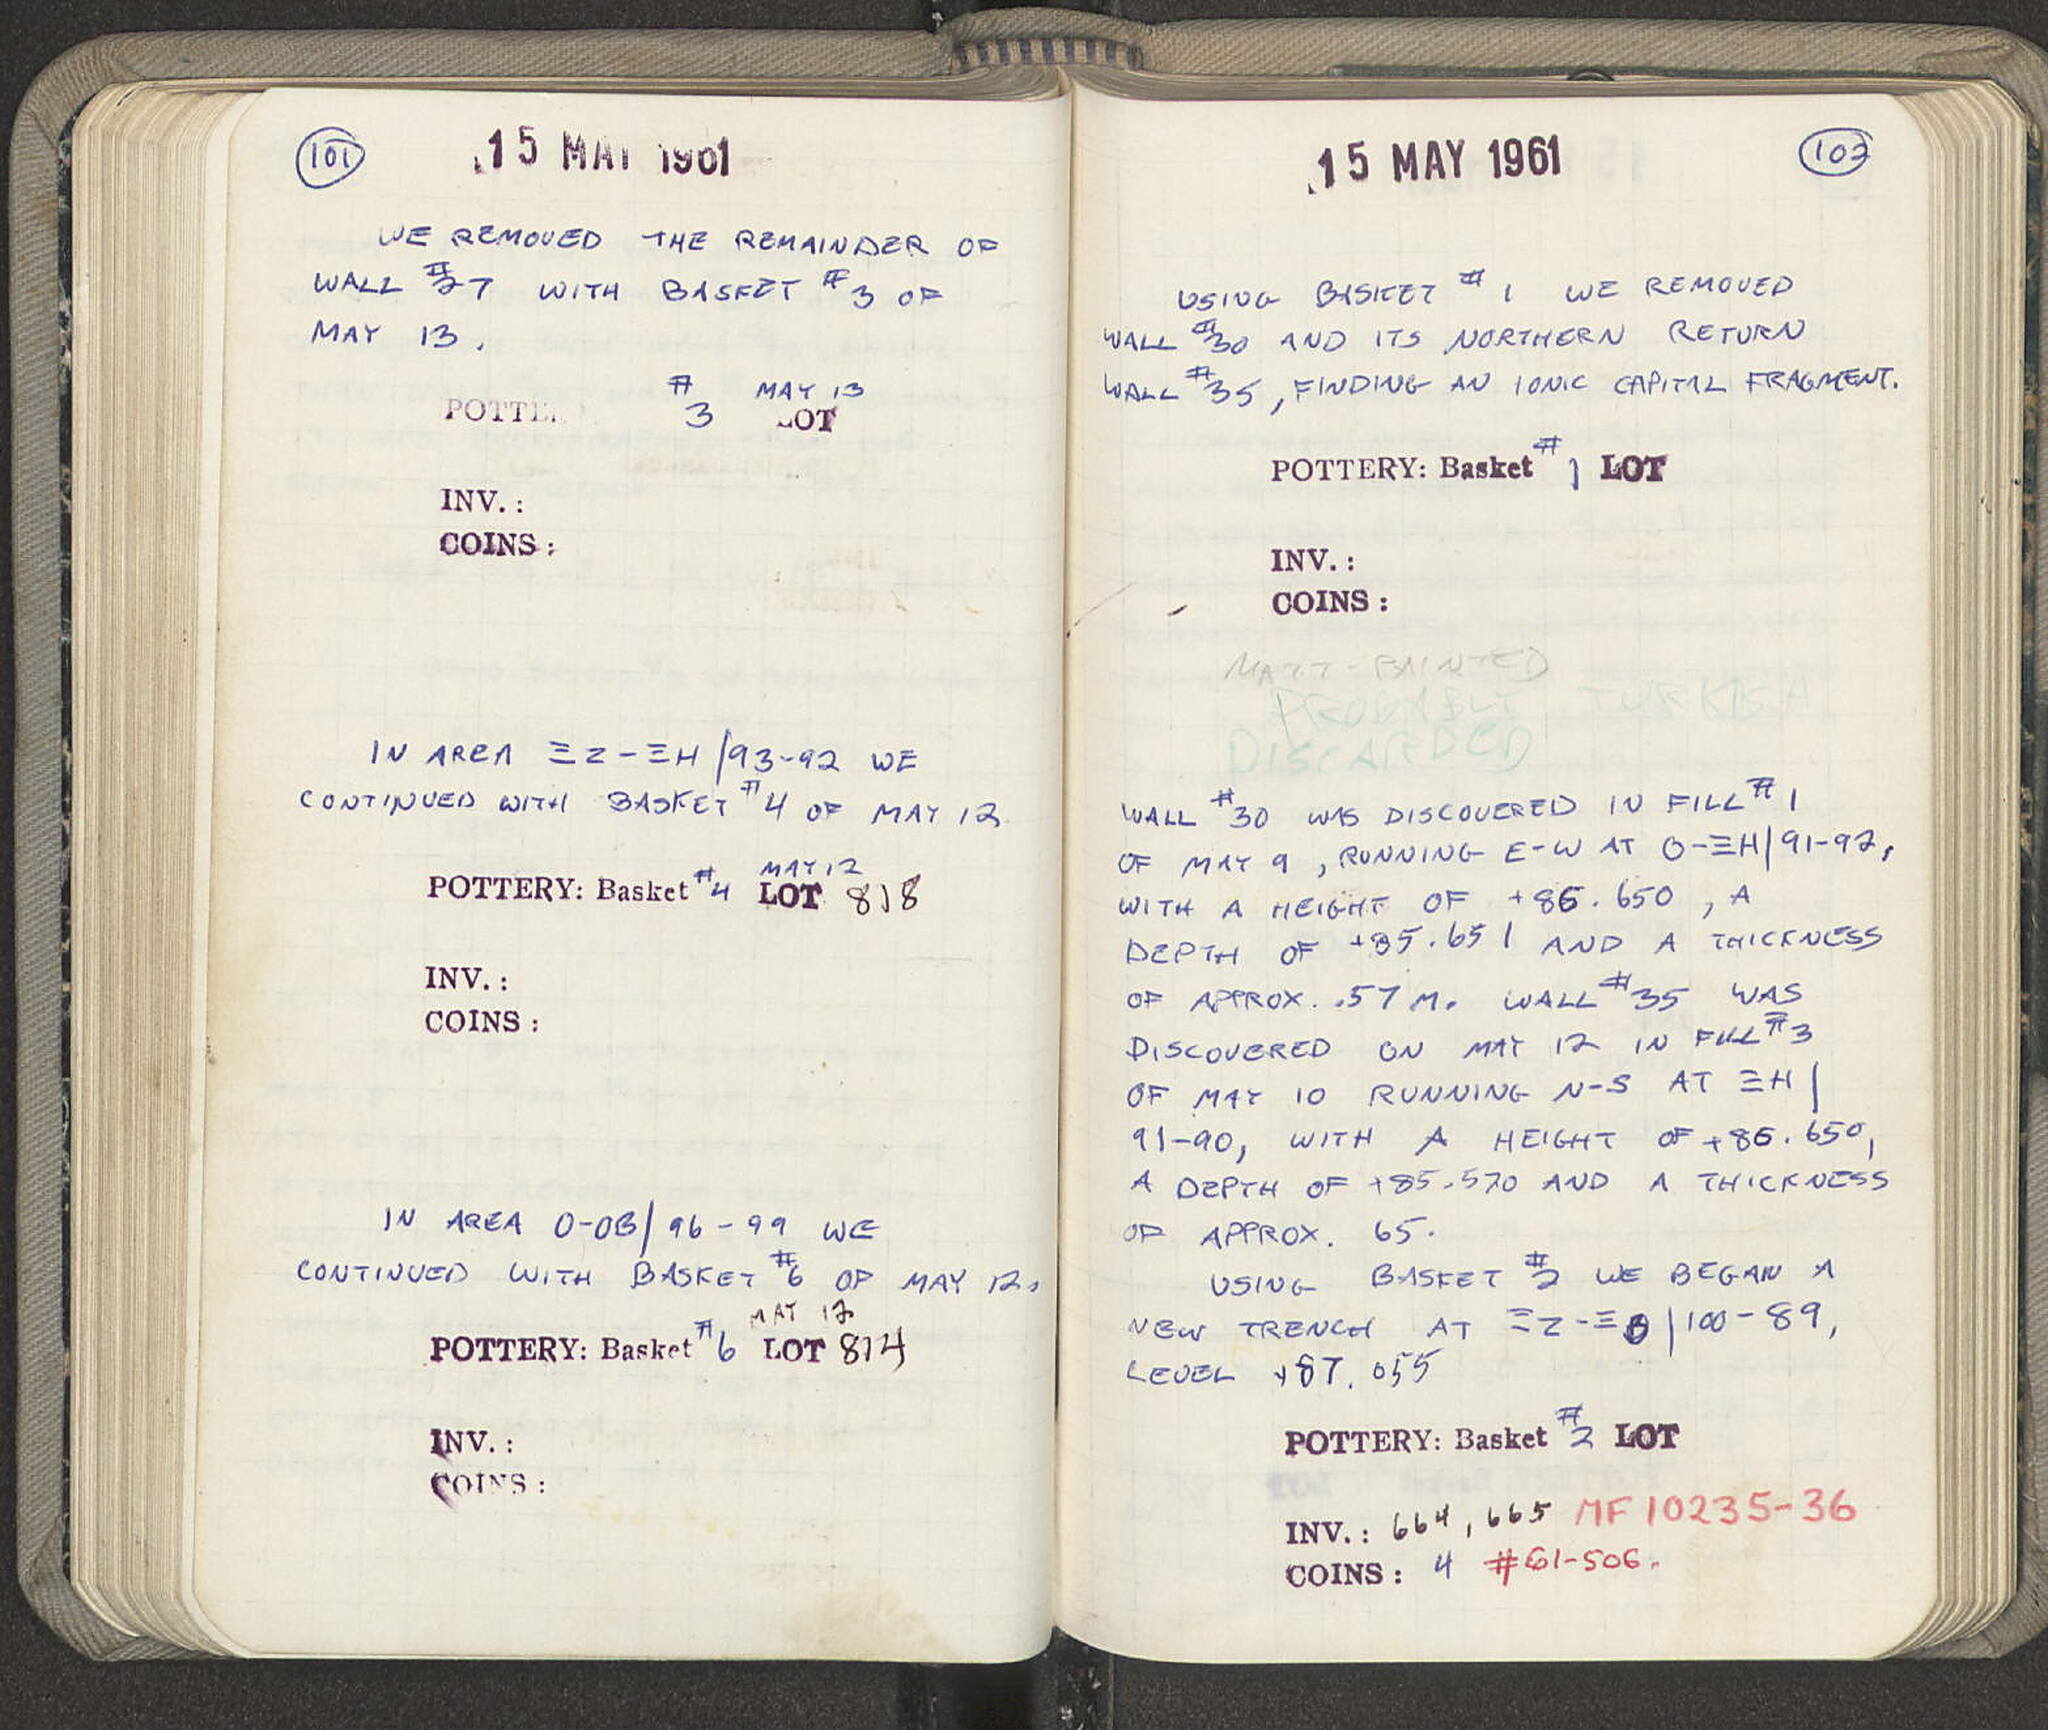 101
15 MAY 1961
WE REMOVED THE REMAINDER OF
WALL #27 WITH BASKET #3 OF
MAY 13.
POTTE #3 MAY 13 LOT
INV. :
COINS :
IN AREA ΞZ-ΞH/93-92 WE
CONTINUED WITH BASKET #4 OF MAY 12
MAY 12
POTTERY: Basket #4 LOT 818
INV. :
COINS :
IN AREA O-OB/96-99 WE
CONTINUED WITH BASKET #6 OF MAY 12.
MAY 12
POTTERY: Basket #6 LOT 814
INV. :
COINS :
102
15 MAY 1961
USING BASKET #1 WE REMOVED
WALL #30 AND ITS NORTHERN RETURN
WALL #35, FINDING AN IONIC CAPITAL FRAGMENT.
POTTERY: Basket #1 LOT
INV. :
COINS :
MATT-PAINTED
PROBABLY TURKISH
DISCARDED
WALL #30 WAS DISCOVERED IN FILL #1
OF MAY 9, RUNNING E-W AT O-ΞH/91-92,
WITH A HEIGHT OF +86.650, A
DEPTH OF +85.651 AND A THICKNESS
OF APPROX. .57 M. WALL #35 WAS
DISCOVERED ON MAY 12 IN FILL #3
OF MAY 10 RUNNING N-S AT ΞH/
91-90, WITH A HEIGHT OF +86.650,
A DEPTH OF +85.570 AND A THICKNESS
OF APPROX. 65.
USING BASKET #2 WE BEGAN A
NEW TRENCH AT ΞZ-ΞΘ/100-89,
LEVEL +87.055
POTTERY: Basket #2 LOT
INV. : 664, 665 MF 10235-36
COINS : 4 #61-506.